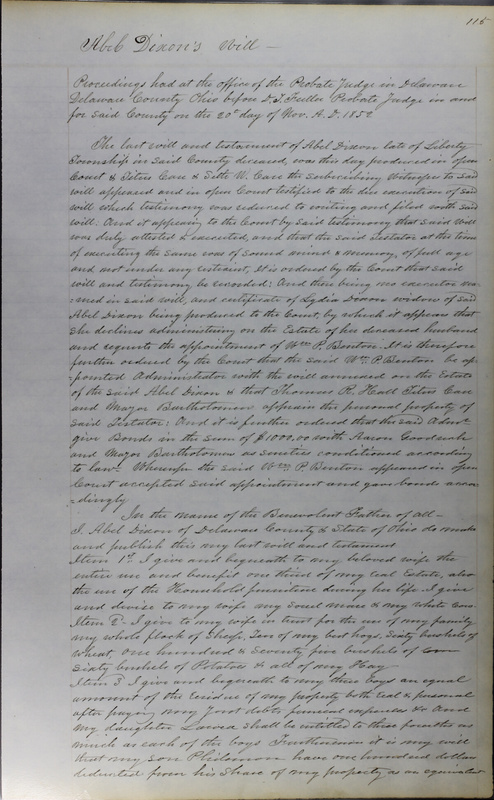 115
Abel Dixon's Will —
Proceedings had at the office of the Probate Judge in Delaware
Delaware County Ohio before D. T. Fuller Probate Judge in and
for said County on the 20th day of Nov. A. D. 1852
The last will and testament of Abel Dixon late of Liberty
Township in said County deceased, was this day produced in open
Court & Titus Case & Seth W. Case the subscribing Witnesses to said
will appeared and in open Court testified to the due execution of said
will which testimony was reduced to writing and filed with said
will. And it appearing to the Court by said testimony that said will
was duly attested & executed, and that the said Testator at the time
of executing the same was of sound mind & memory, of full age
and not under any restraint, It is ordered by the Court that said
will and testimony be recorded: And there being no executor na-
-med in said will, and certificate of Lydia Dixon widow of said
Abel Dixon being produced to the Court, by which it appears that
she declines administering on the Estate of her deceased husband
and requests the appointment of Wm P. Benton. It is therefore
further ordered by the Court that the said Wm P. Benton be ap-
-pointed Administrator with the will annexed on the Estate
of the said Abel Dixon & that Thomas R. Hall Titus Case
and Major Bartholomew appraise the personal property of
said Testator: And it is further ordered that the said Admr
give Bonds in the sum of $1000.00 with Aaron
and Major Bartholomew as sureties conditioned according
to law. Whereupon the said Wm P. Benton appeared in open
Court accepted said appointment and gave bonds accor-
-dingly
In the name of the Benevolent Father of all —
I. Abel Dixon of Delaware County & State of Ohio do make
and publish this my last will and testament
Item 1st I give and bequeath to my beloved wife the
entire use and benefit one third of my real Estate, also
the use of the Household furniture during her life. I give
and devise to my wife my sorrel mare & my white Cow.
Item 2d I give to my wife in trust for the use of my family
my whole flock of Sheep, Ten of my best hogs, Sixty bushels of
wheat, one hundred & Seventy five bushels of corn
Sixty bushels of Potatoes & all of my Hay
Item 3 I give and bequeath to my three boys an equal
amount of the residue of my property both real & personal
after paying my Just debts funeral expenses &c And
my daughter shall be entitled to three fourths as
much as each of the boys Furthermore it is my will
that my son Philemon have one hundred dollars
deducted from his Share of my property as an equivalent